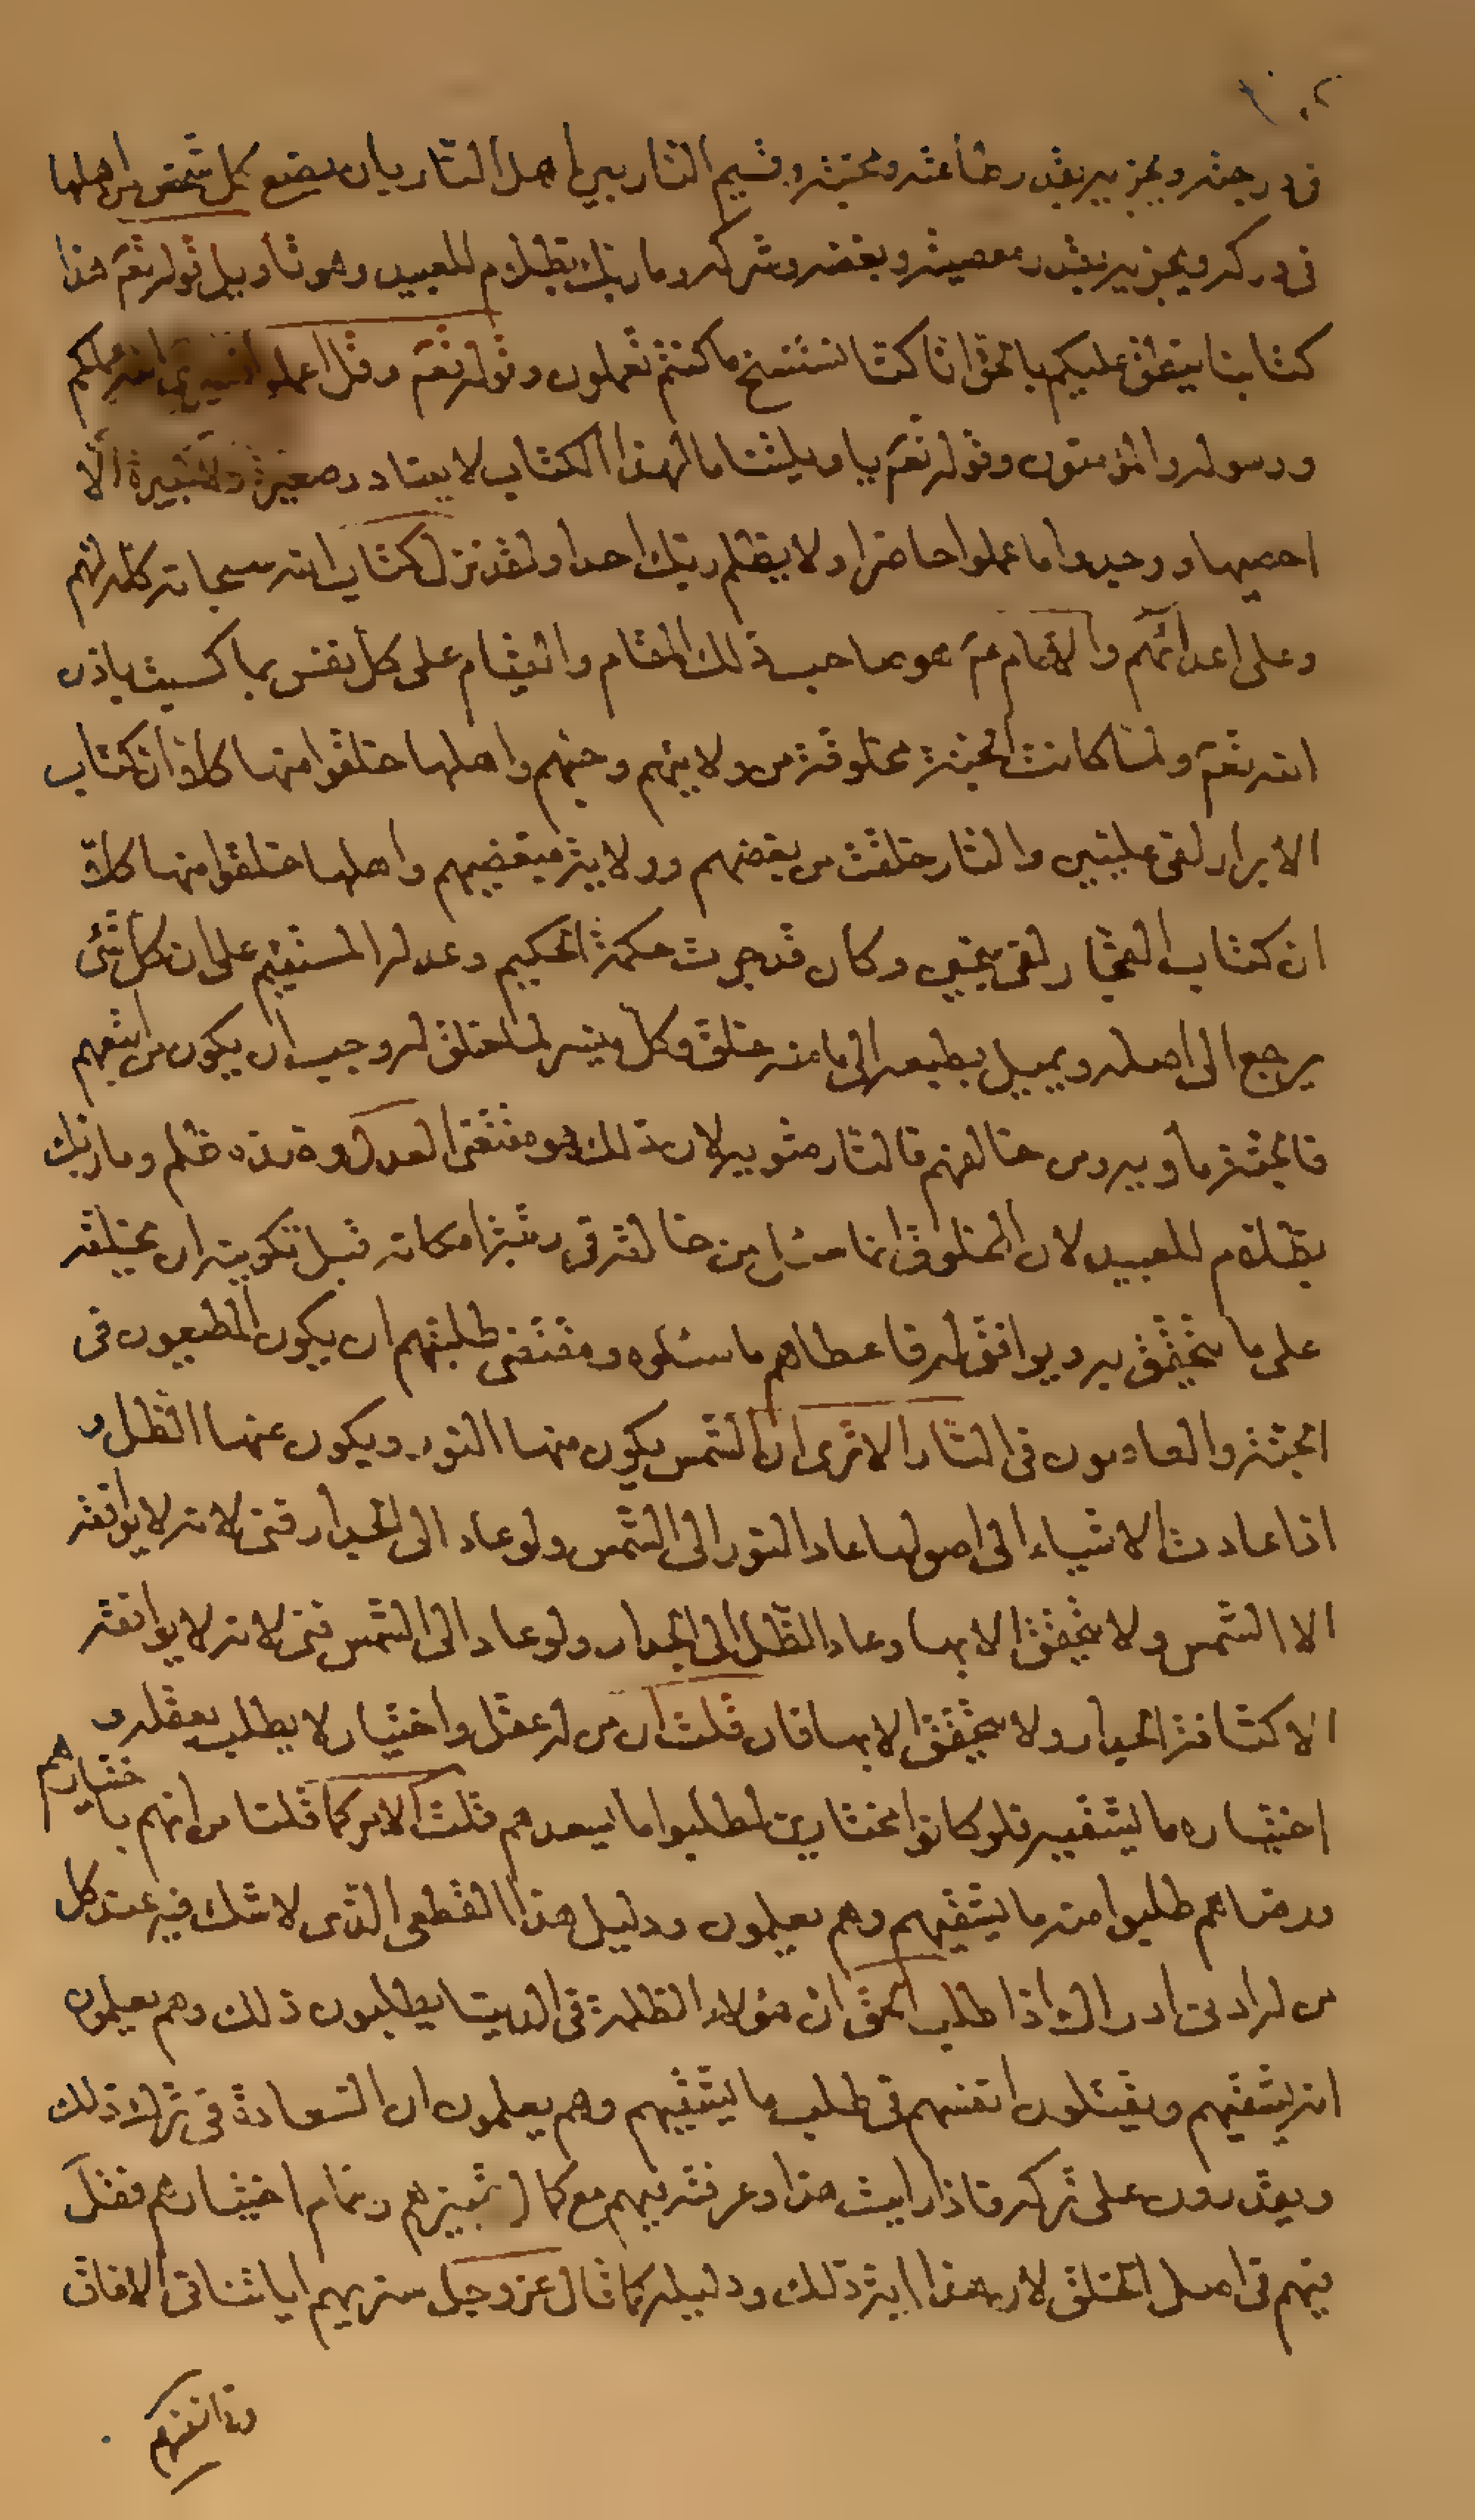 ١٠٢
فى درجته ويجزيه بقدر طاعته ومحبته وقسيم النار بين اهل النار بان يضع كل شخص من اهلها
فى دركه ويجزيه بقدر معصيته وبغضه وشركه وما ربك بظلام للعبيد وهو تأويل قوله تعم هذا
كتابنا ينطق عليكم بالحق انا كنا نستنسخ ما كنتم تعملون وقوله تعم وقل اعملوا فسيرى الله عملكم
ورسوله والمؤمنون وقوله تعم يا ويلتنا ما لهذا الكتاب لا يغادر صغيرة ولا كبيرة الا
احصيها ووجدوا ما عملوا حاضرا ولا يظلم ربك احدا ولقد نزل كتاب الله سبحانه كله لهم
وعلى اعدائهم والامام عم هو صاحب ذلك المقام والقيام على كل نفس بما كسبت باذن
الله تعم ولما كانت الجنة مخلوقة من ولايتهم وحبهم واهلها خلقوا منها كلا ان كتاب
الأبرار لفى عليين والنار خلقت من بغضهم وولاية مبغضيهم واهلها خلقوا منها كلا
ان كتاب الفجار لفى سجين وكان قد جرت حكمة الحكيم وعدله المستقيم على ان كل شئ
يرجع الى اصله ويميل بطبعه الى ما منه خلق وكل ميسر لما خلق له وجب ان يكون من اتبعهم
فالجنة مأويه ومن خالفهم فالنار مثويه لان ذلك هو مقتضى العدل وضده ظلم وما ربك
بظلام للعبيد لان المخلوق انما سئل من خالقه فى رتبة امكانه قبل تكوينه ان يخلقه
على ما يتحقق به ويوافق له فاعطاهم ما سئلوه ومقتضى طلبتهم ان يكون المطيعون فى
الجنة والعاصون فى النار الا ترى ان الشمس يكون منها النور ويكون عنها الظل و
اذا عادت الاشياء الى اصولها عاد النور الى الشمس ولو عاد الى الجدار فنى لانه لا يوافقه
الا الشمس ولا يتحقق الا بها وعاد الظل الى الجدار ولو عاد الى الشمس فنى لانه لا يوافقه
الا كثافة الجدار ولا يتحقق الا بها فان قلت ان من له عقل واختيار لا يطلب بعقله و
اختياره ما يشقيه فلو كانوا مختارين لطلبوا ما يسعدهم قلت الامر كما قلنا من انهم باختيارهم
ورضاهم طلبوا منه ما يشقيهم وهم يعلمون ودليل هذا القطعى الذى لا شك فيه عند كل
من له ادنى ادراك اذا طلب الحق ان هؤلاء الظلمة فى الدنيا يطلبون ذلك وهم يعلمون
انه يشقيهم ويقتلون انفسهم فى طلب ما يشقيهم وهم يعلمون ان السعادة فى ترك ذلك
ويقدرون على تركه فاذا رايت هذا وعرفته فيهم مع كمال تميزهم وتمام اختيارهم فقل
فيهم فى اصل الخلق لان هذا اية ذلك ودليله كما قال عز وجل سنريهم اياتنا فى الافاق
وفى انفسهم